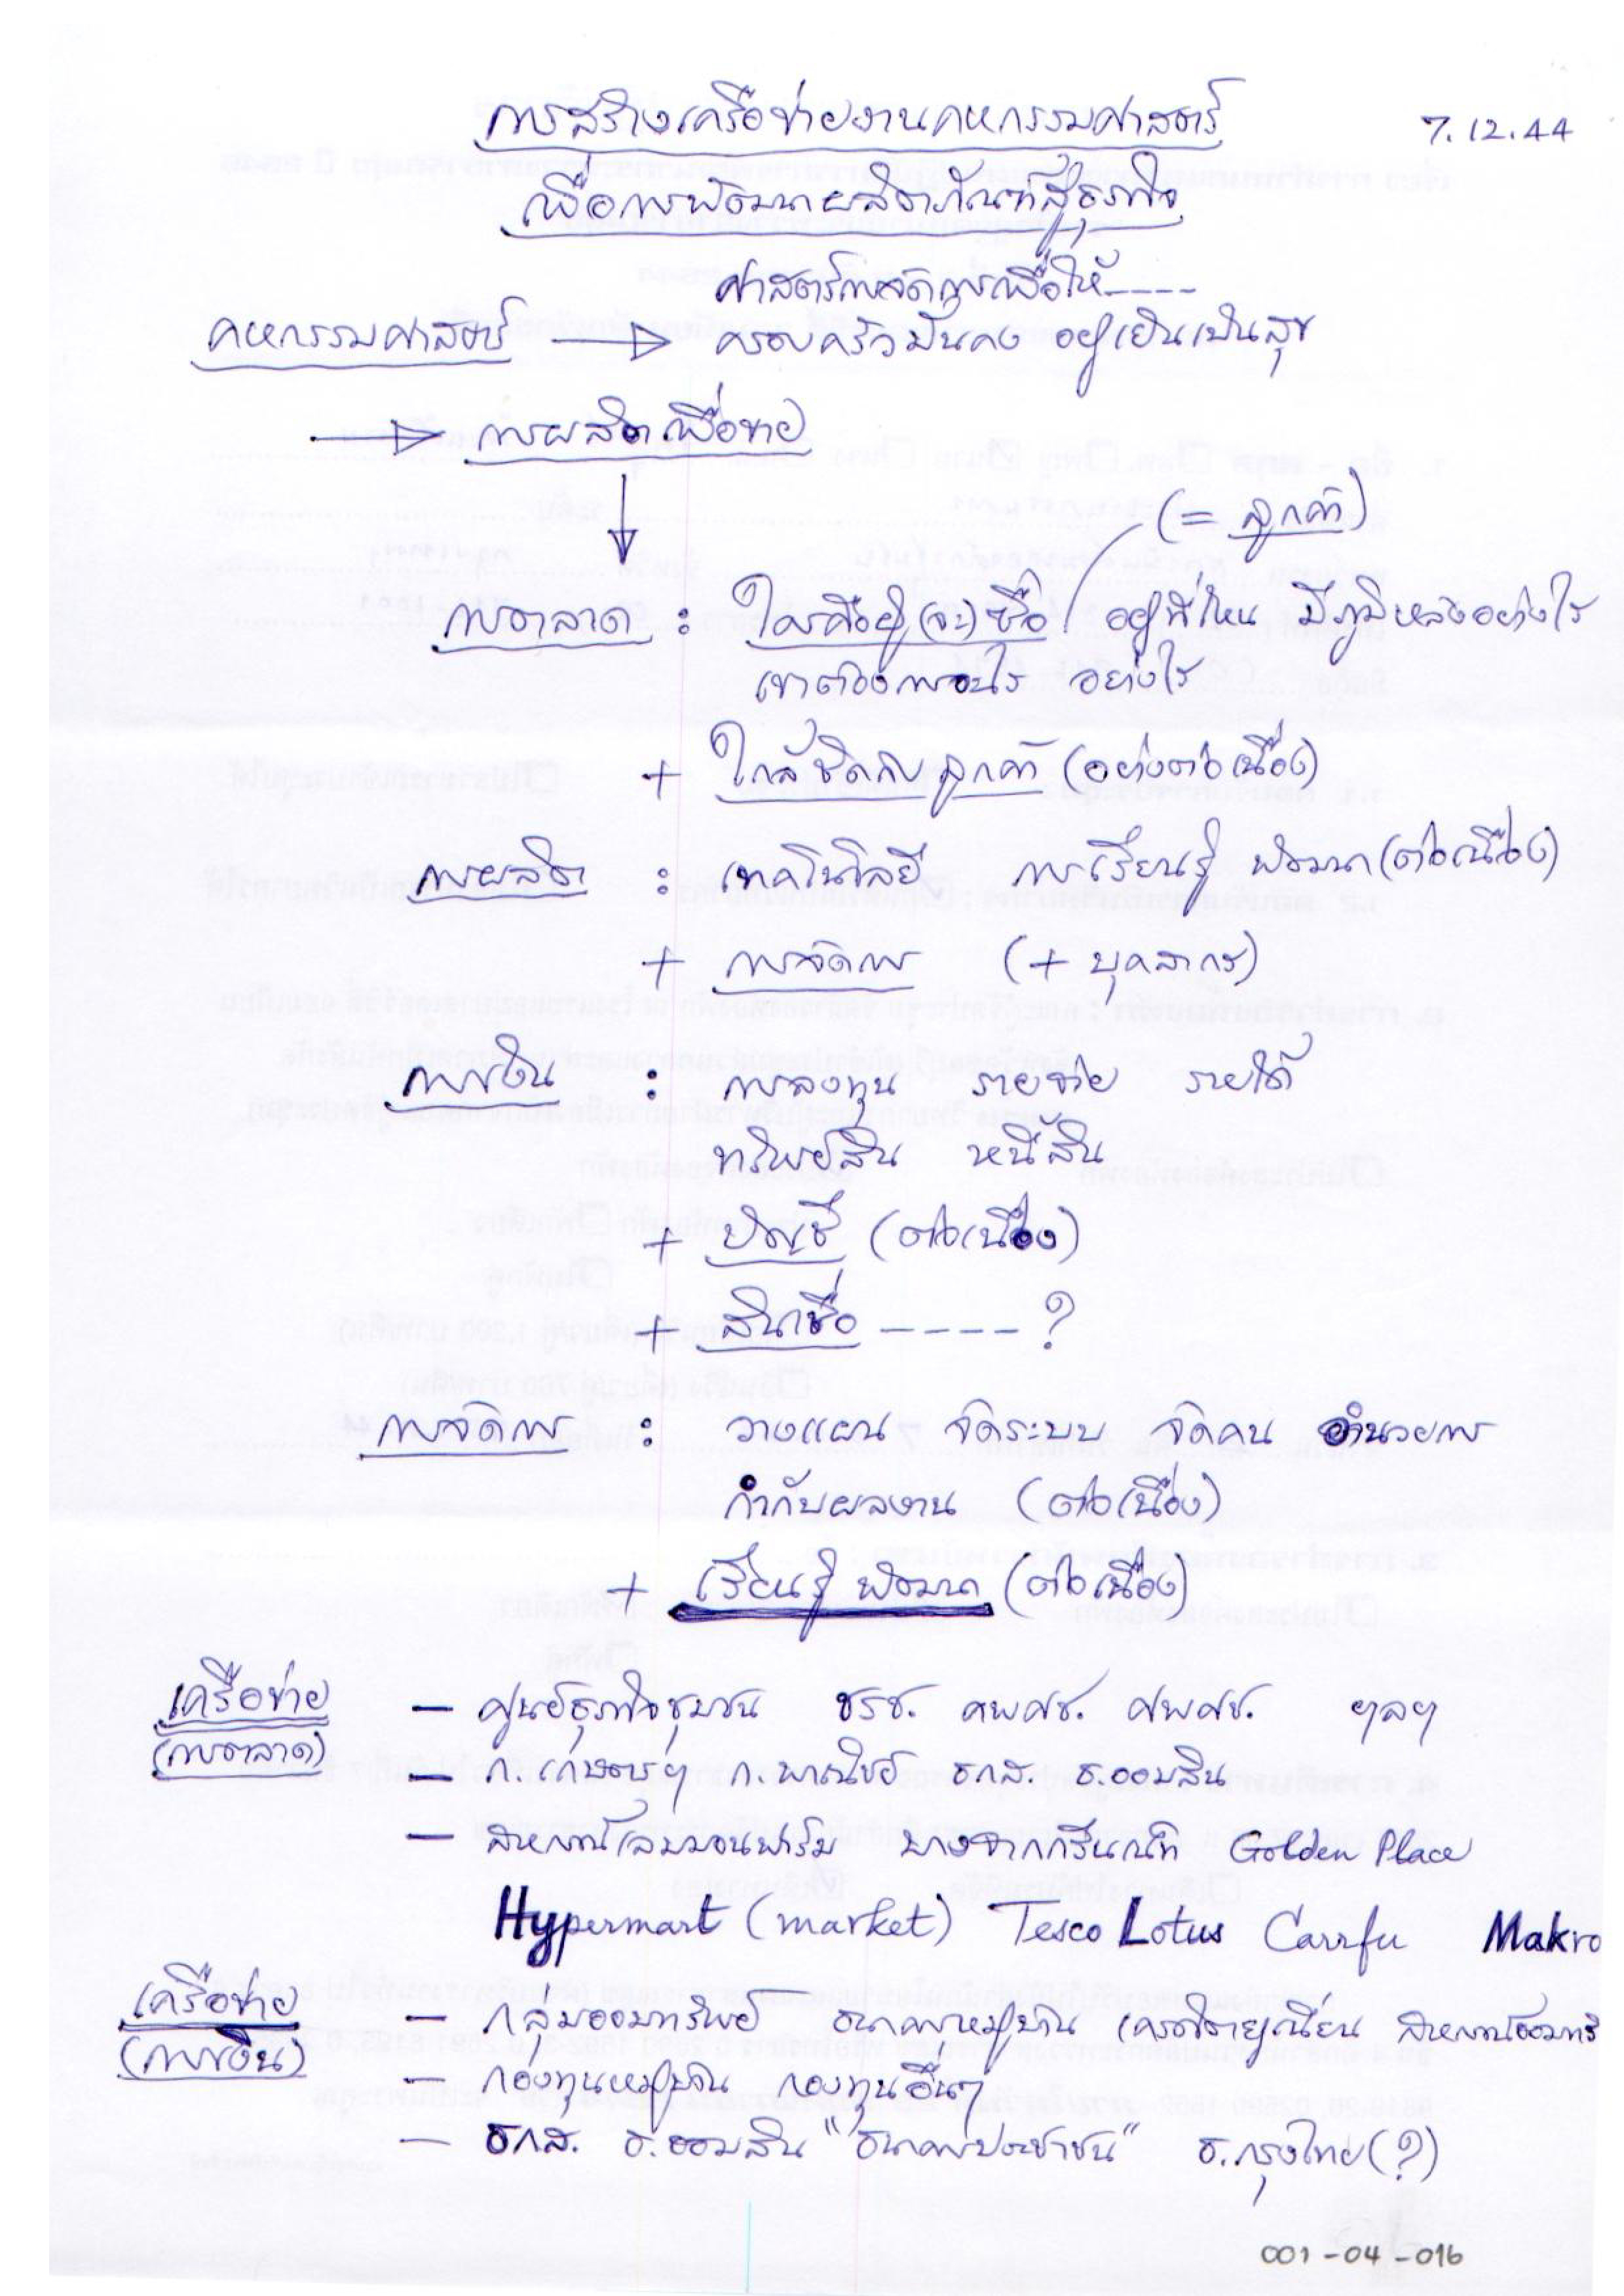 การสร้างเครือข่ายงานคหกรรมศาสตร์ 7.12.44
เพื่อการพัฒนาผลิตภัณฑ์สู่ธุรกิจ
ศาสตร์การจัดการเพื่อให้----
คหกรรมศาสตร์ → ครอบครัวมั่นคง อยู่เย็นเป็นสุข
→ การผลิตเพื่อขาย
↓
(= ลูกค้า)
การตลาด : ใครคือผู้(จะ)ซื้อ อยู่ที่ไหน มีภูมิหลังอย่างไร
เขาต้องการอะไร อย่างไร
+ ใกล้ชิดกับลูกค้า (อย่างต่อเนื่อง)
การผลิต : เทคโนโลยี การเรียนรู้ พัฒนา (ต่อเนื่อง)
+ การจัดการ (+ บุคลากร)
การเงิน : การลงทุน รายจ่าย รายได้
ทรัพย์สิน หนี้สิน
+ บัญชี (ต่อเนื่อง)
+ สินเชื่อ ----- ?
การจัดการ : วางแผน จัดระบบ จัดคน อำนวยการ
กำกับผลงาน (ต่อเนื่อง)
+ เรียนรู้ พัฒนา (ต่อเนื่อง)
เครือข่าย — ศูนย์ธุรกิจชุมชน ชรช. คพศช. ศพศช. ฯลฯ
(การตลาด)
— ก. เกษตรฯ ก. พาณิชย์ ธกส. ธ.ออมสิน
— สหกรณ์ เลมมอนฟาร์ม บางจากกรีนเนท Golden Place
Hypermart (market) Tesco Lotus Carrfu Makro
เครือข่าย — กลุ่มออมทรัพย์ ธนาคารหมู่บ้าน เครดิตยูเนี่ยน สหกรณ์ออมทรั
(การเงิน)
— กองทุนหมู่บ้าน กองทุนอื่นๆ
— ธกส. ธ.ออมสิน "ธนาคารประชาชน" ธ.กรุงไทย (?)
001-04-016